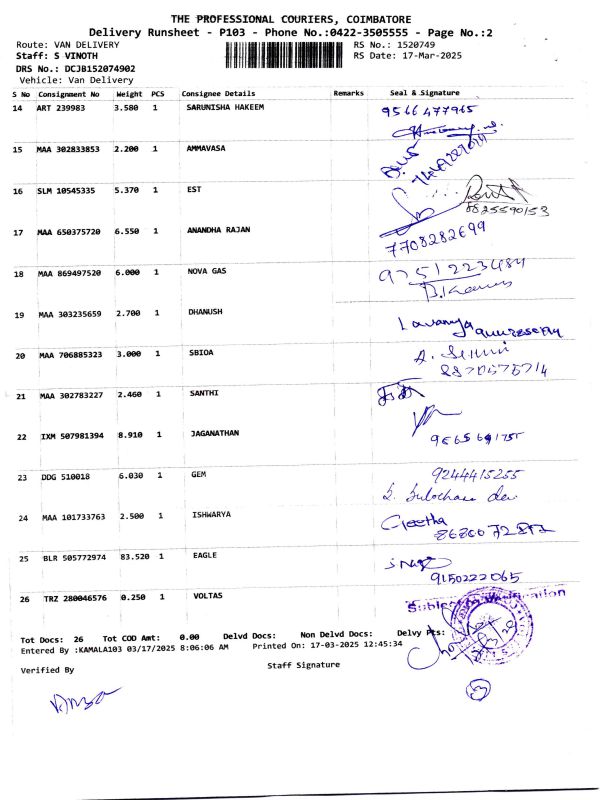 THE PROFESSIONAL COURIERS, COIMBATORE
Delivery Runsheet - P103 - Phone No.:0422-3505555 - Page No.:2
Route: VAN DELIVERY RS No.: 1520749
Staff: S VINOTH RS Date: 17-Mar-2025
DRS No.: DCJB152074902
Vehicle: Van Delivery
S No Consignment No Weight PCS Consignee Details Remarks Seal & Signature
14 ART 239983 3.580 1 SARUNISHA HAKEEM 9566 477965
15 MAA 302833853 2.200 1 AMMAVASA
16 SLM 10545335 5.370 1 EST
8825590153
17 MAA 650375720 6.550 1 ANANDHA RAJAN
7708282699
18 MAA 869497520 6.000 1 NOVA GAS 9751223484
19 MAA 303235659 2.700 1 DHANUSH
Lavanya
20 MAA 706885323 3.000 1 SBIOA
21 MAA 302783227 2.460 1 SANTHI
22 IXM 507981394 8.910 1 JAGANATHAN
23 DDG 510018 6.030 1 GEM 9244415255
24 MAA 101733763 2.500 1 ISHWARYA
Geetha
25 BLR 505772974 83.520 1 EAGLE
9150222065
26 TRZ 280046576 0.250 1 VOLTAS
Subject to Verification
Tot Docs: 26 Tot COD Amt: 0.00 Delvd Docs: Non Delvd Docs: Delvy Pts:
Entered By :KAMALA103 03/17/2025 8:06:06 AM Printed On: 17-03-2025 12:45:34
Verified By Staff Signature